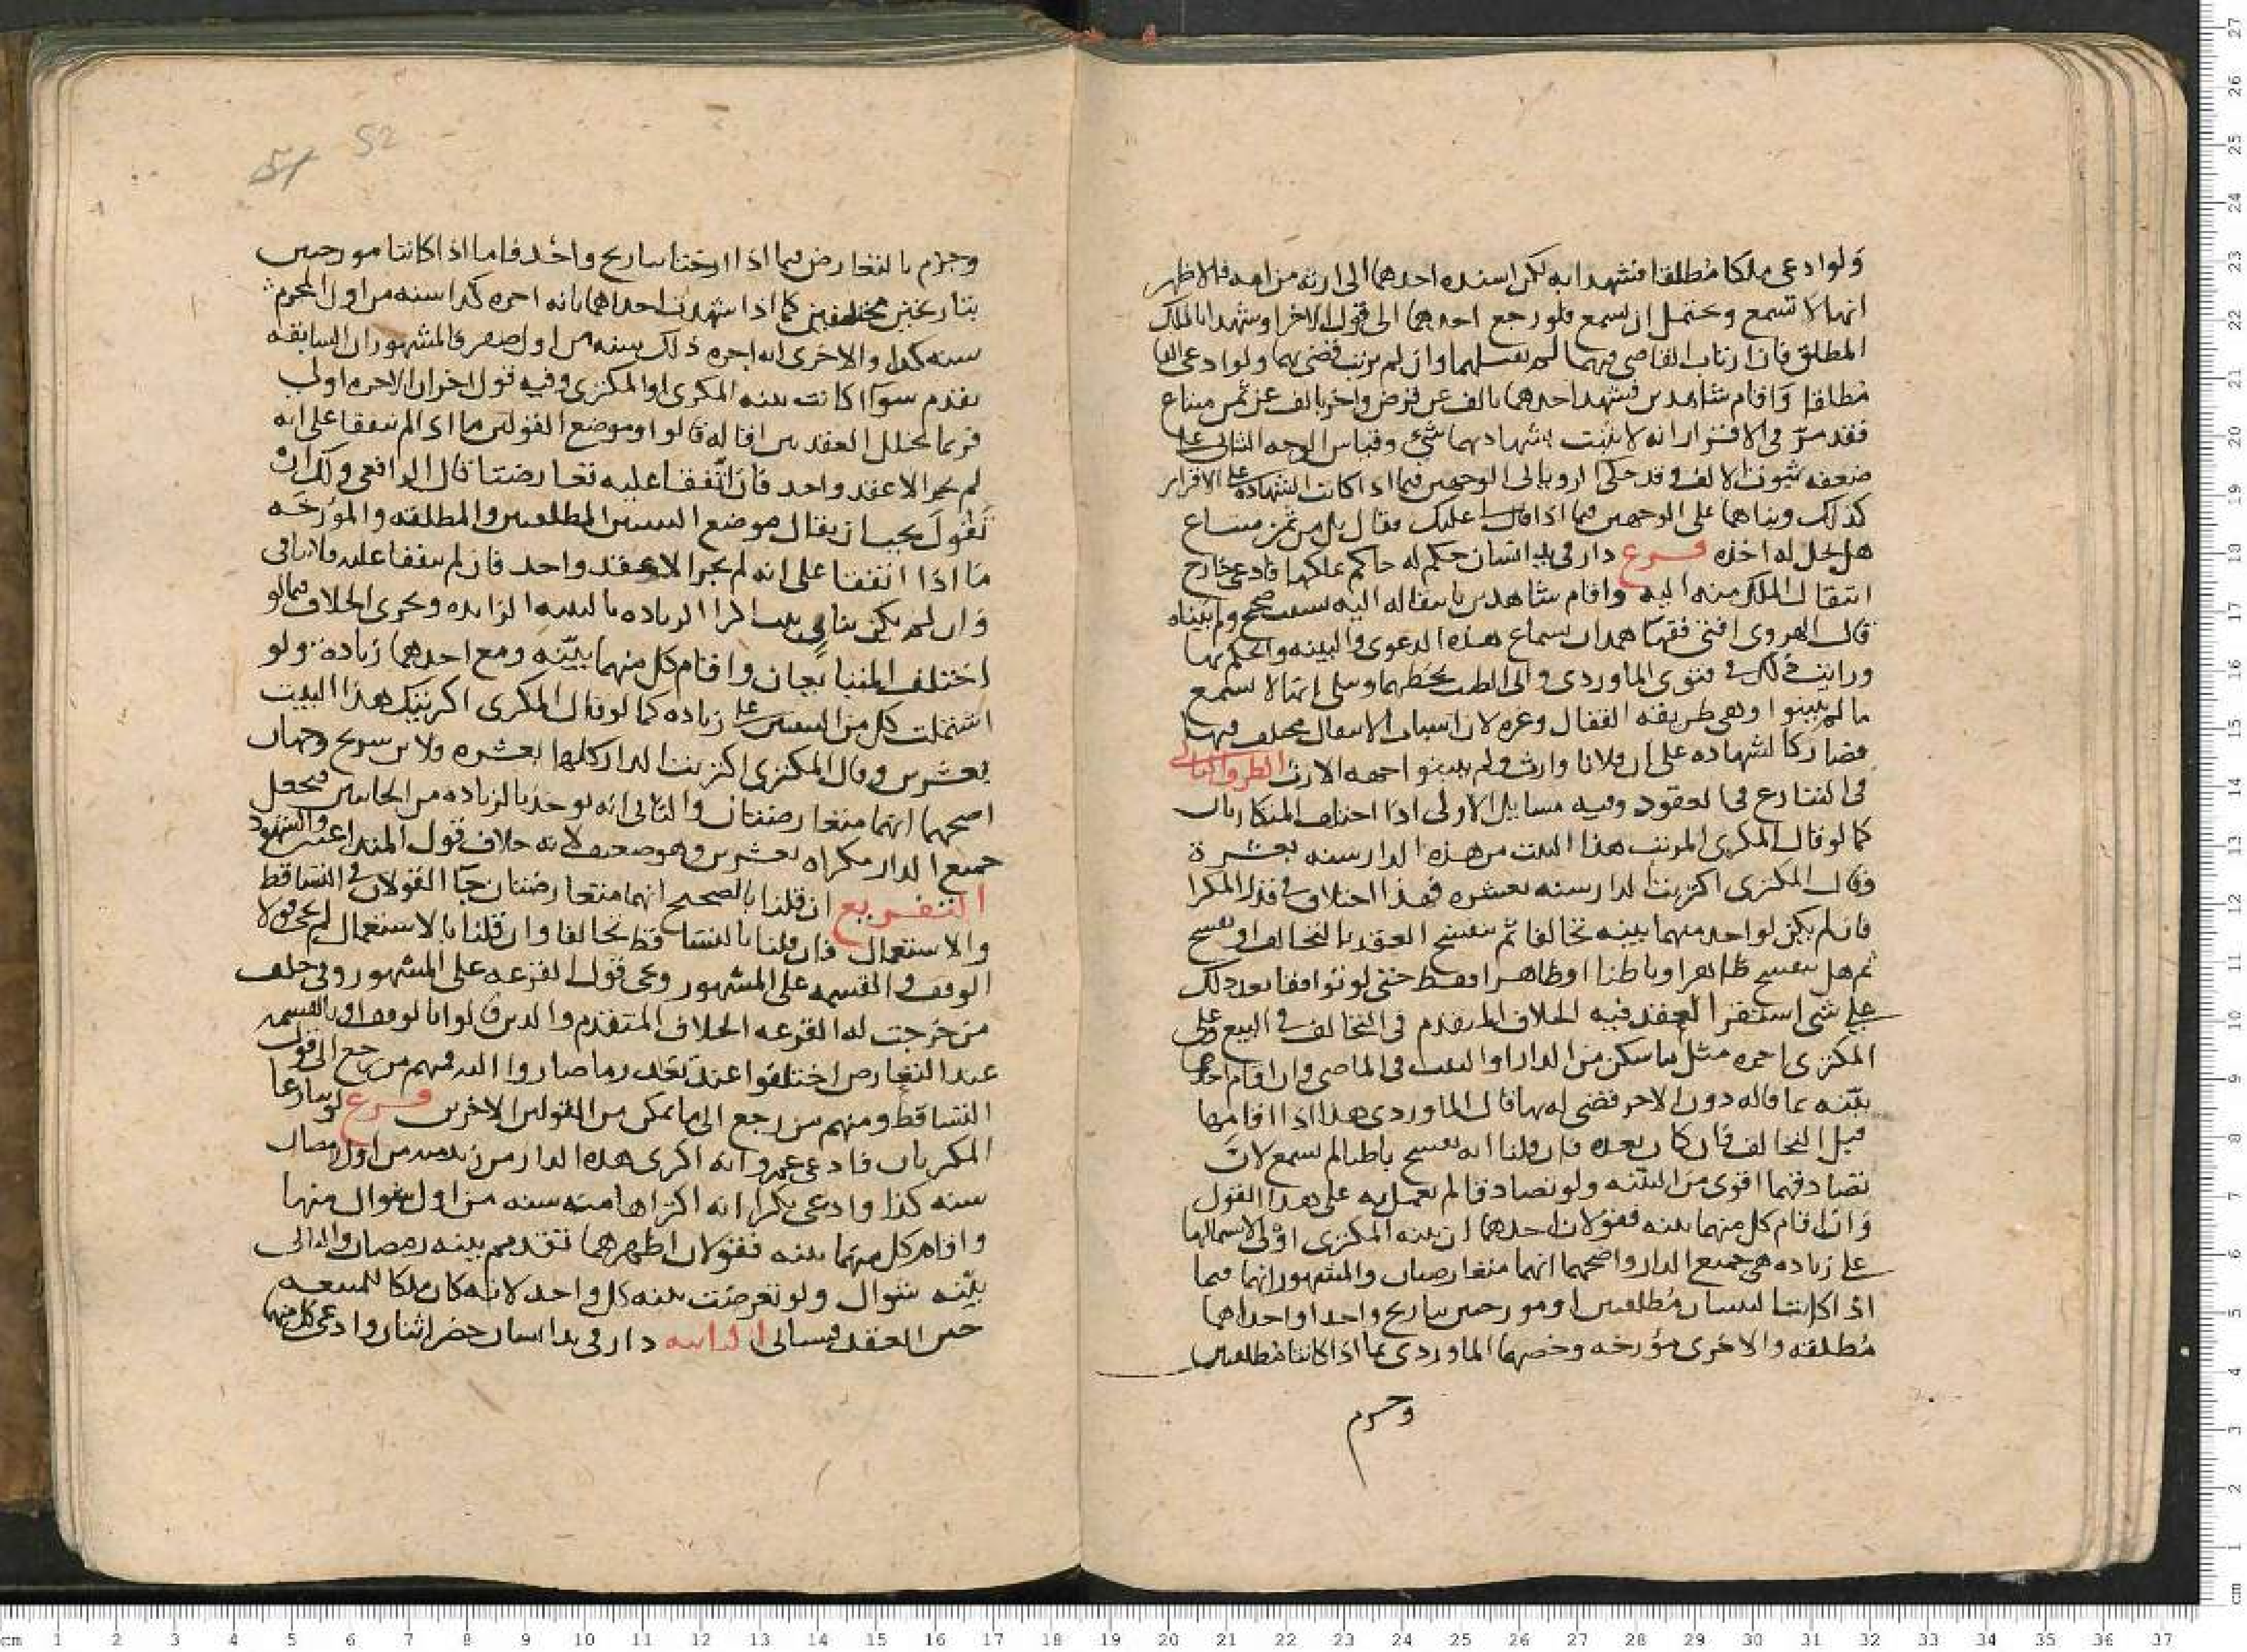 ولو ادعى ملكا مطلقا فشهدا به لكن اسنده احدهما الى ارثه من امه فالاظهر
انها لا تسمع ويحتمل ان تسمع فلو رجع احدهما الى قول الاخر او شهدا بالملك
المطلق فان ارتاب القاضي فيهما لم يقبلهما وان لم يرتب قضى بهما ولو ادعى الفا
مطلقا واقام شاهدين فشهد احدهما بالف عن قرض واخر بالف عن ثمن مبتاع
فقد مر في الاقرار انه لا يثبت بشهادتهما شي وقياس الوجه الثاني على
ضعفه ثبوت الالف وقد حكى الروياني الوجهين فيما اذا كانت الشهادة على الاقرار
كذلك وبناهما على الوجهين فيما اذا قال عليك فقال بل من ثمن مبتاع
هل يحل له اخذه فرع دار في يد انسان حكم له حاكم بملكها فادعى خارج
انتقال الملك منه اليه واقام شاهدين بانتقاله اليه بسبب صحيح ولم يبيناه
قال الهروي افتى فقها همدان بسماع هذه الدعوى والبينه والحكم بها
ورايت ذلك في فتوى الماوردي وابي الطيب بخطهما وميلي انها لا تسمع
ما لم يبينوا وهي طريقة القفال وغيره لان اسباب الانتقال مختلف فيها
فصار كالشهاده على ان فلانا وارث ولم يبينوا جهه الارث الطرف الثاني
في التنازع في العقود وفيه مسايل الاولى اذا اختلف المتكاريان
كما لو قال المكري اكريتك هذا البيت من هذه الدار سنه بعشرة
وقال المكتري اكتريت الدار سنه بعشره فهذا اختلاف في قدر المكرا
فان لم يكن لواحد منهما بينه تحالفا ثم ينفسخ العقد بالتحالف او يفسخ
ثم هل ينفسخ ظاهرا وباطنا او ظاهرا فقط حتى لو توافقا بعد ذلك
على شي استقر العقد فيه الخلاف المتقدم في التحالف في البيع وعلى
المكتري اجره مثل ما سكن من الدار او البيت في الماضي وان اقام احدهما
بينه بما قاله دون الاخر قضي له بها قال الماوردي هذا اذا اقامها
قبل التحالف فان كان بعده فان قلنا انه ينفسخ باطنا لم تسمع لان
تصادقهما اقوى من البينه ولو تصادقا لم يعمل به على هذا القول
وان اقام كل منهما بينه فقولان احدهما ان بينه المكتري اولى لاشتمالها
على زياده هي جميع الدار واصحهما انهما متعارضتان والمشهور انهما فيما
اذا كانت البينتان مطلقتين او مورختين بتاريخ واحد او احداهما
مطلقه والاخرى مؤرخه وخصهما الماوردي بما اذا كانتا مطلقتين
وجزم
52
51
وجزم بالتعارض فيما اذا ارختا بتاريخ واحد فاما اذا كانتا مورختين
بتاريخين مختلفين كما اذا شهدت احداهما بانه اجره كذا سنه من اول المحرم
سنه كذا والاخرى انه اجره ذلك سنه من اول صفر فالمشهور ان السابقه
تقدم سوآ كانت بينه المكري او المكتري وفيه قول اخر ان الاخره اولى
فربما تخلل العقدين اقاله قالوا وموضع القولين ما اذا لم يتفقا على انه
لم يجر الا عقد واحد فان اتفقا عليه تعارضتا قال الرافعي ولك ان
تقول يجب ان يقال موضع البينتين المطلقتين والمطلقه والمؤرخه
ما اذا اتفقا على انه لم يجر الا عقد واحد فان لم يتفقا عليه فلا تنافي
وان لم يكن تنافي ثبت الزياده بالبينه الزايده ويجري الخلاف فيما لو
اختلف المتبايعان واقام كل منهما بينه ومع احدهما زياده ولو
اشتملت كل من البينتين على زياده كما لو قال المكري اكريتك هذا البيت
بعشرين وقال المكتري اكتريت الدار كلها بعشره فلابن سريج وجهان
اصحهما انهما متعارضتان والثاني انه يوخذ بالزياده من الجانبين فيجعل
جميع الدار مكراه بعشرين وهو ضعيف لانه خلاف قول المتداعيين والشهود
التفريع ان قلنا بالصحيح انهما متعارضتان جآ القولان في التساقط
والاستعمال فان قلنا بالتساقط تحالفا وان قلنا بالاستعمال لم يجئ قولا
الوقف والقسمه على المشهور ويجي قول القرعه على المشهور وفي حلف
من خرجت له القرعه الخلاف المتقدم والذين قالوا بالوقف او بالقسمه
عند التعارض اختلفوا عند تعذر ما صاروا اليه فمنهم من رجع الى قول
التساقط ومنهم من رجع الى ما يمكن من القولين الاخرين فرع لو تنازعا
المكريان فادعى عمرو انه اكرى هذه الدار من زيد سنه من اول رمضان
سنه كذا وادعى بكر انه اكراها منه سنه من اول شوال منها
واقام كل منهما بينه فقولان اظهرهما تقدم بينه رمضان والثاني
بينه شوال ولو تعرضت بينه كل واحد لانه كان ملكا للمبيعه
حين العقد فسياتي الثانيه دار في يد انسان حضر اثنان وادعى كل منهما